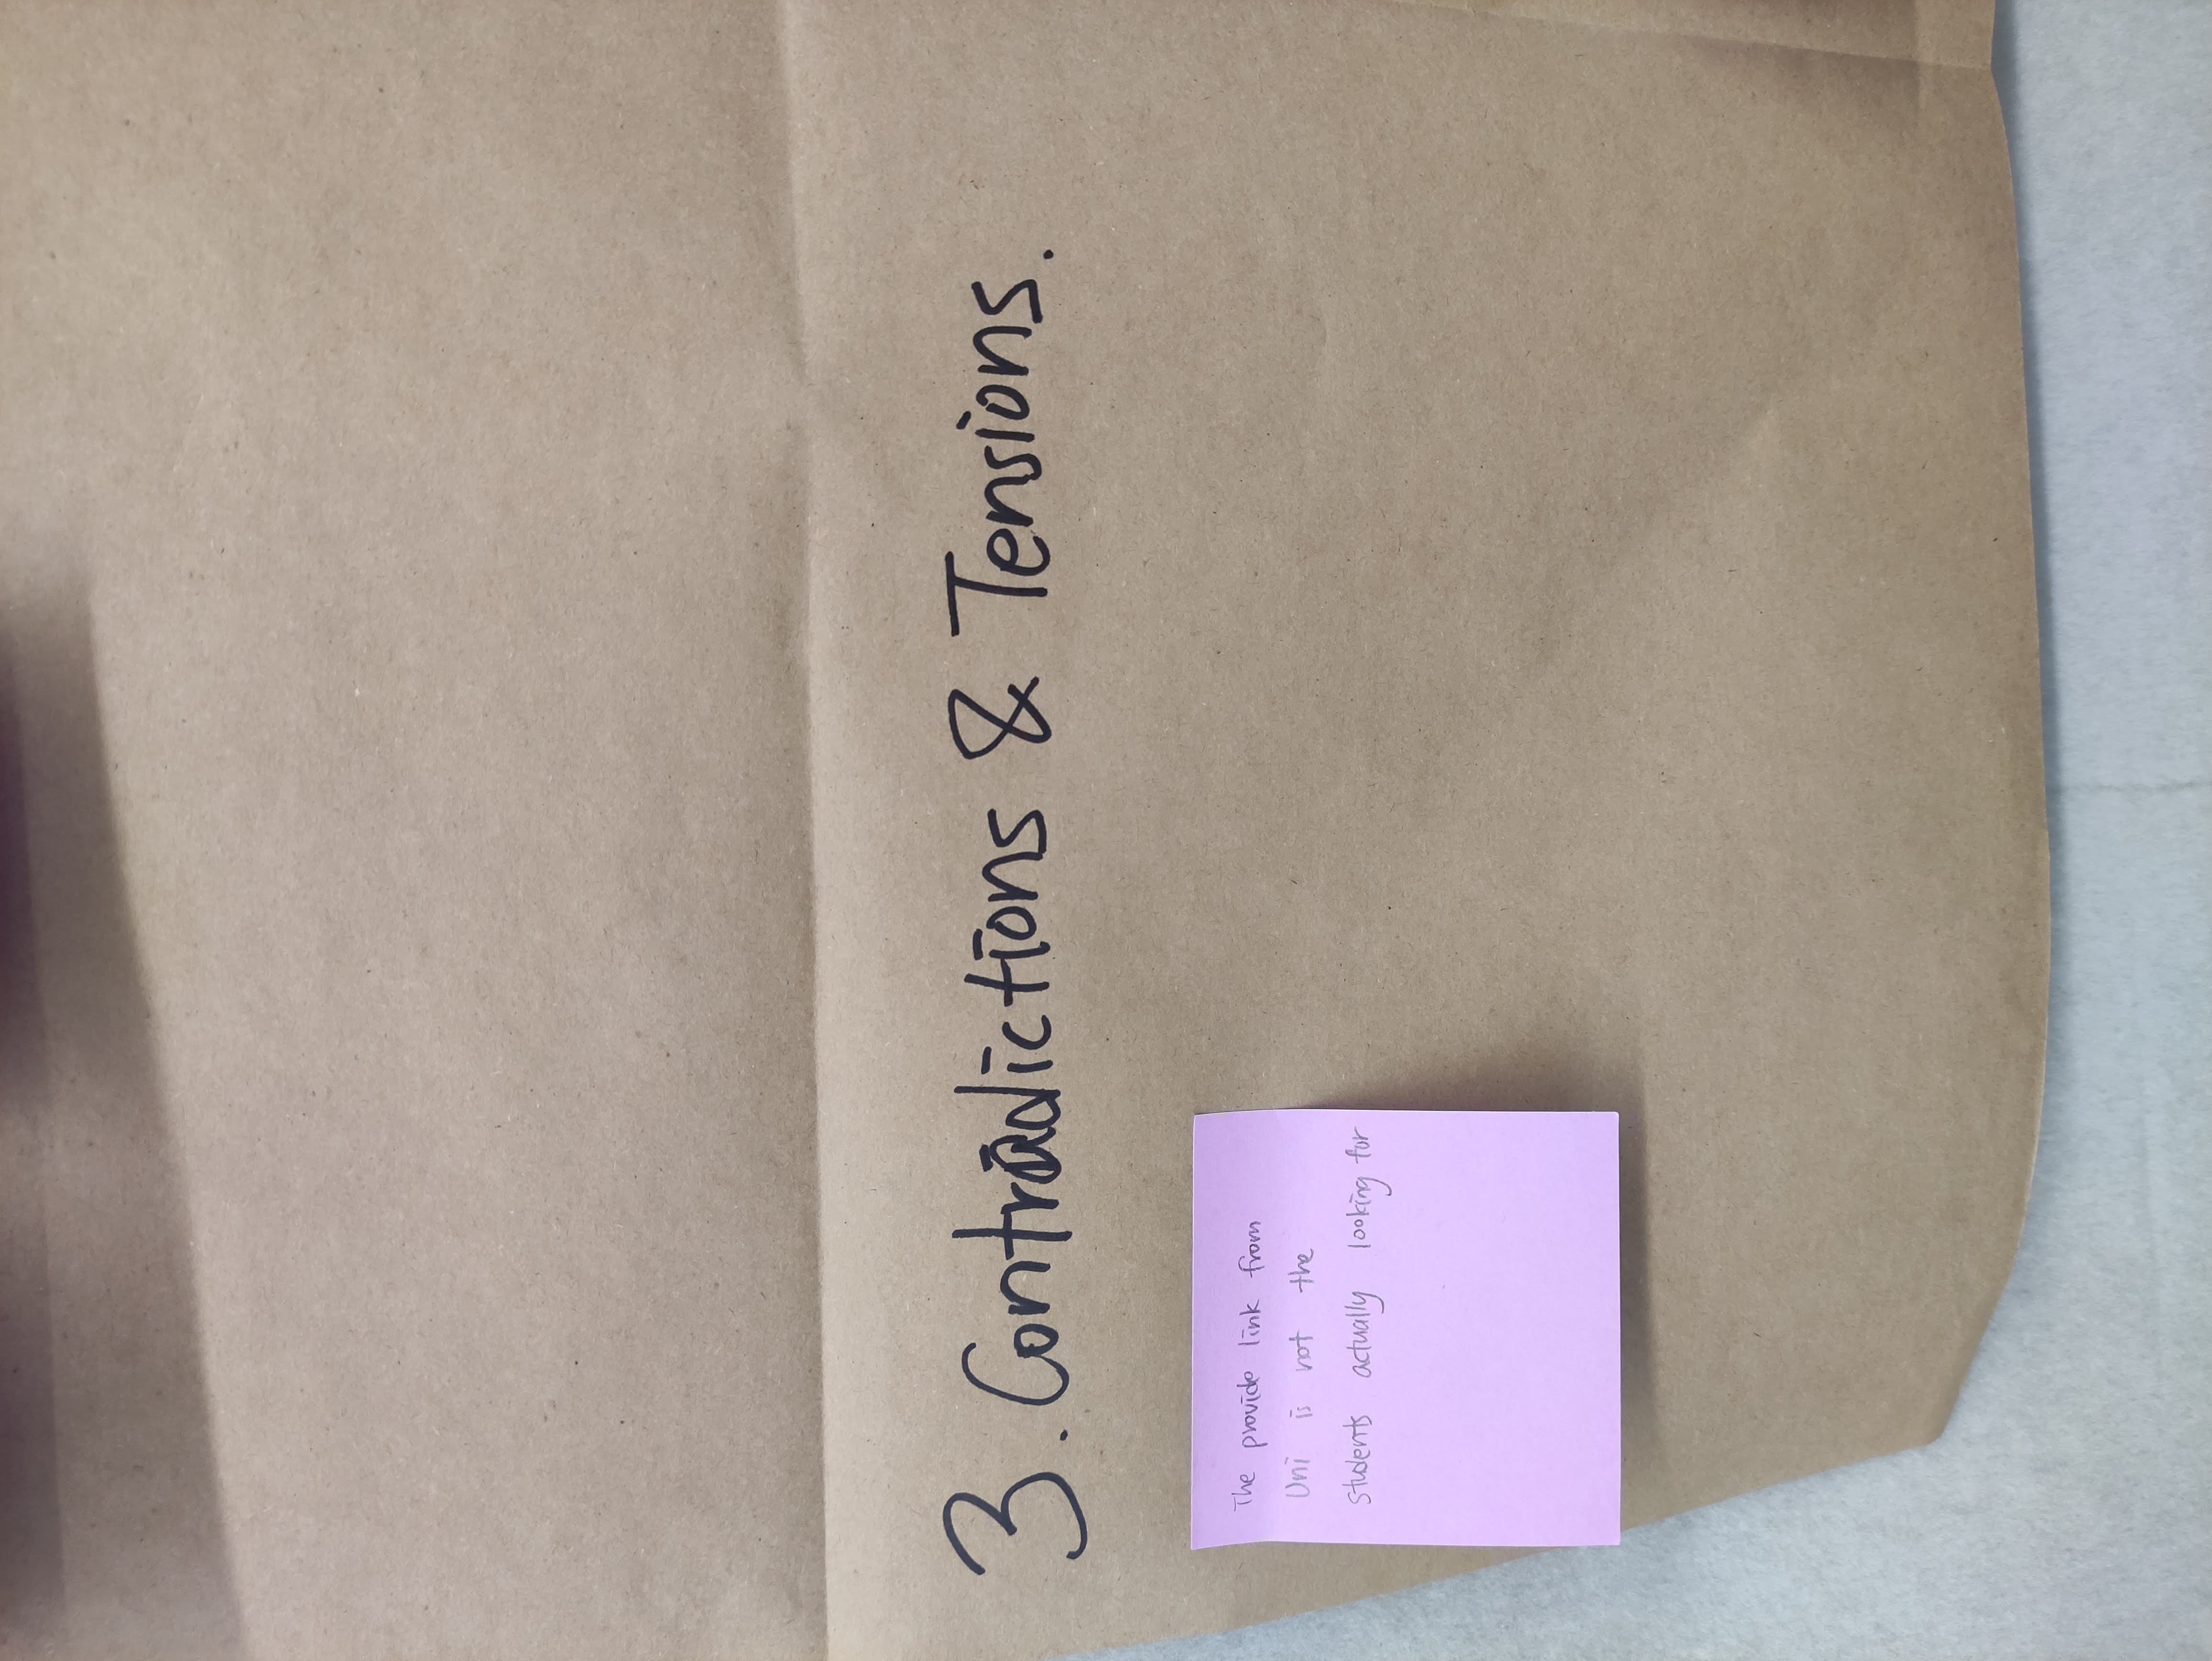 3. Contradictions & Tensions.
The provide link from
Uni is not the
students actually looking for